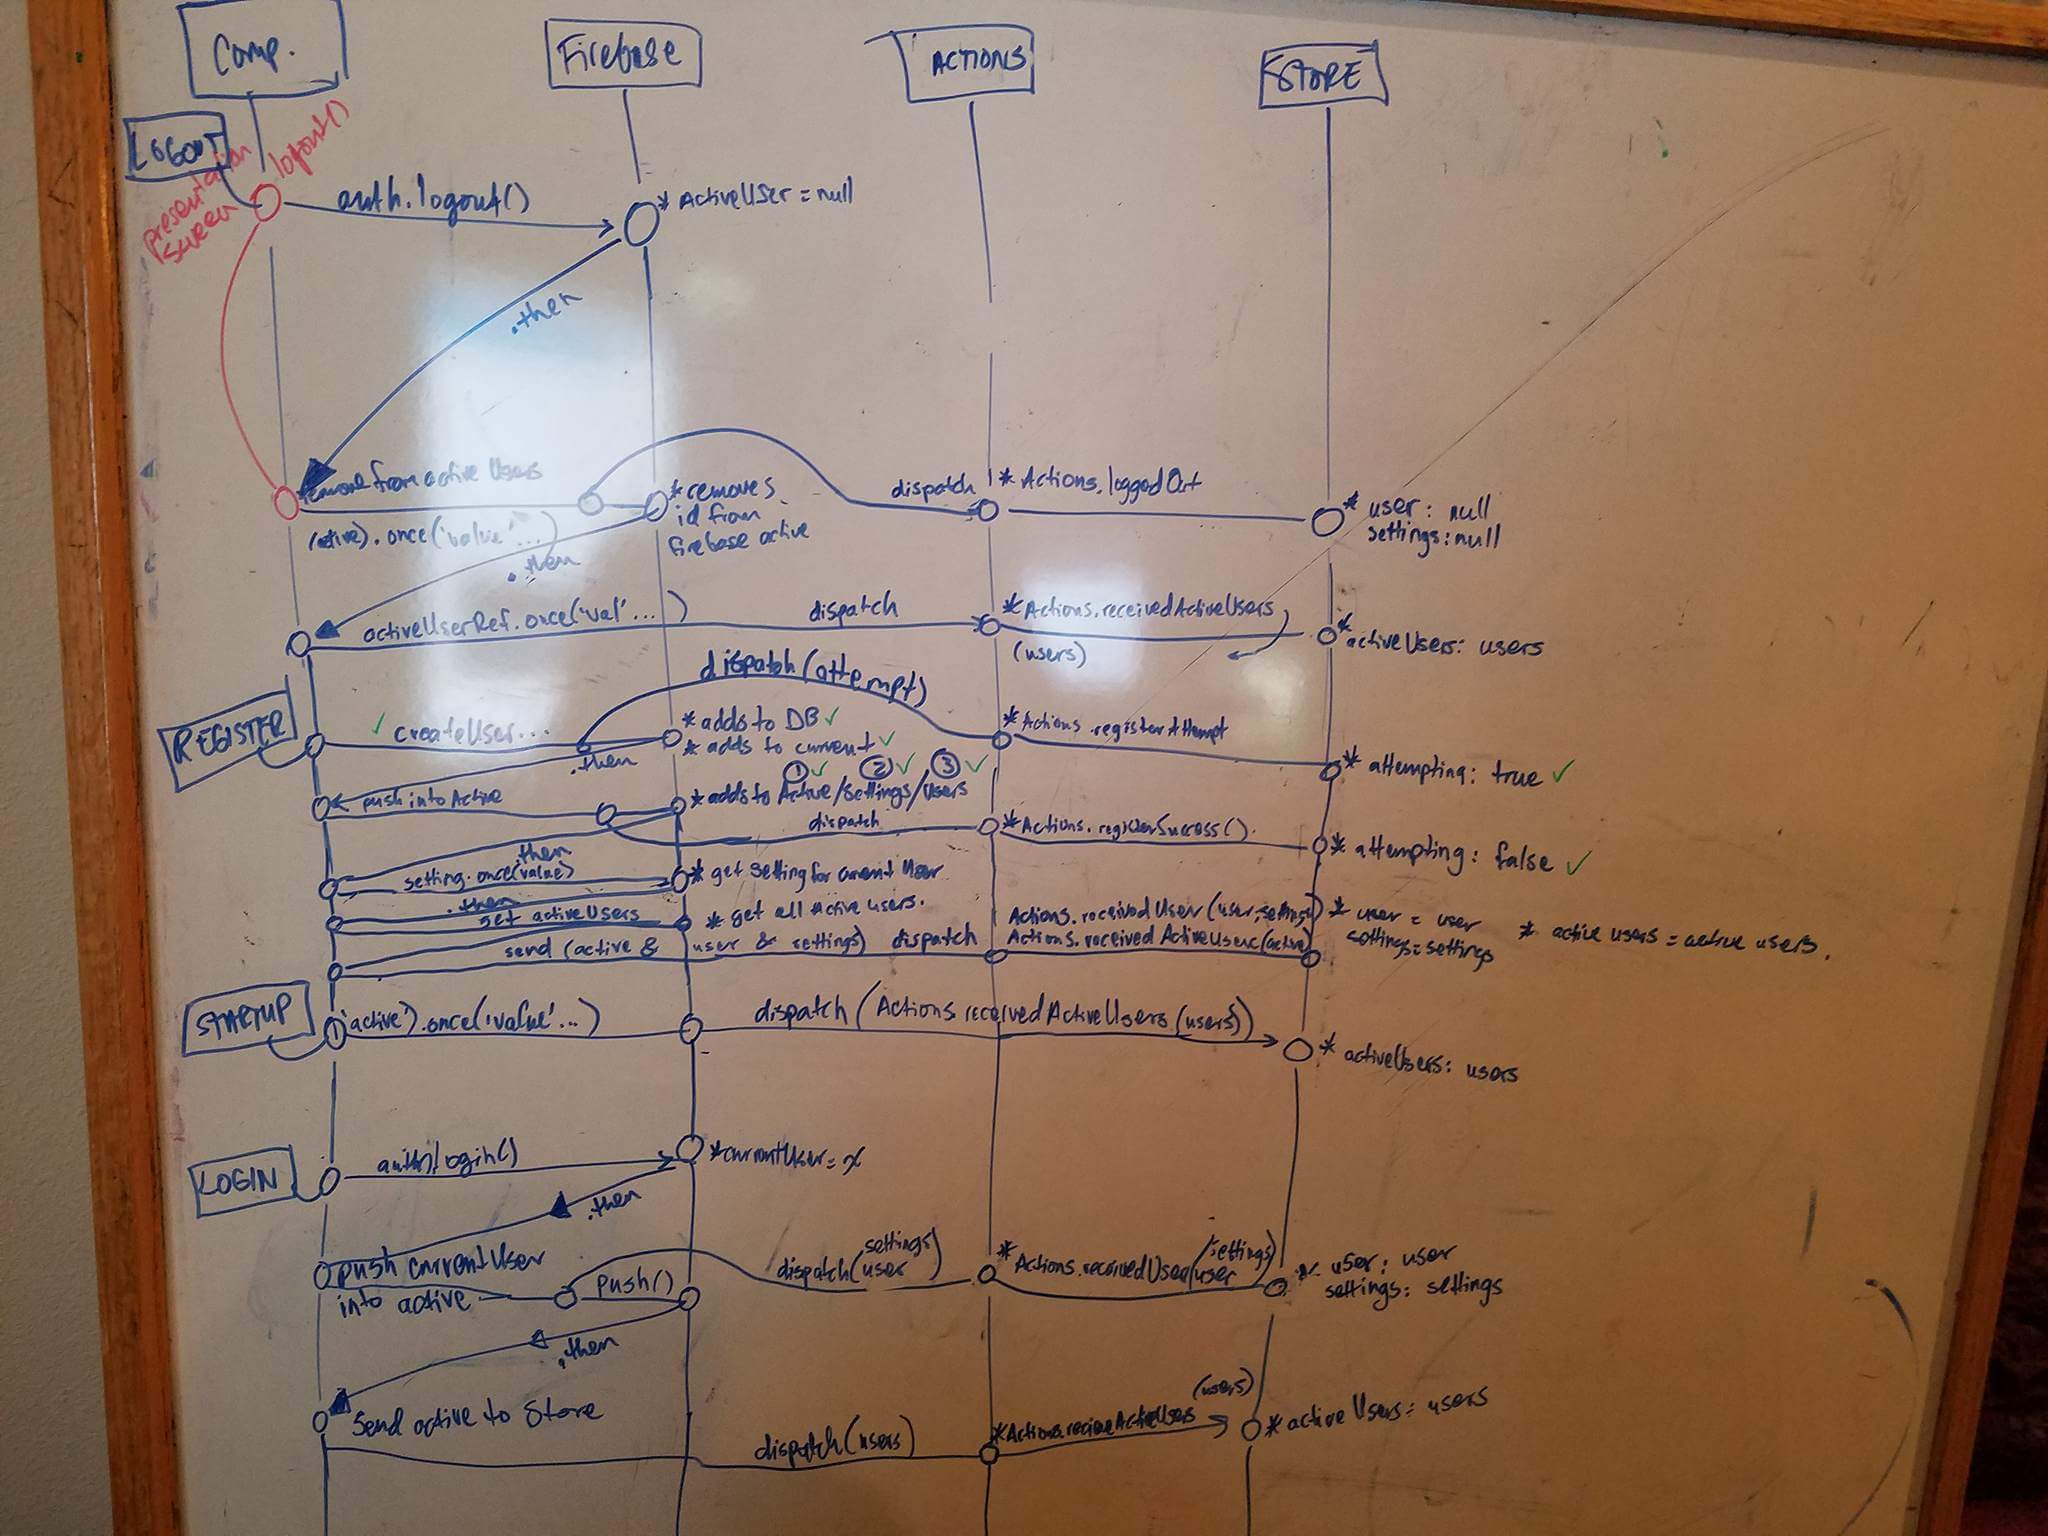 Comp.
Firebase
ACTIONS
STORE
LOGOUT
logout()
presentation
screen
auth.logout()
* ActiveUser = null
.then
remove from active Users
(active).once('value'...)
* removes
id from
firebase active
dispatch
* Actions.loggedOut
* user: null
settings: null
.then
activeUserRef.once('val'...)
dispatch
* Actions.receivedActiveUsers
(users)
* activeUsers: users
dispatch(attempt)
REGISTER
✓ createUser...
* adds to DB ✓
* adds to current ✓
* Actions.registerAttempt
* attempting: true ✓
.then
① ✓ ② ✓ ③ ✓
push into Active
* adds to Active/Settings/Users
dispatch
* Actions.registerSuccess().
* attempting: false ✓
.then
setting.once(value)
* get setting for current User
.then
get activeUsers
* get all Active users.
Actions.receivedUser(user,settings)
* user = user
settings = settings
* active users = active users.
send (active & user & settings) dispatch
Actions.receivedActiveUsers(active)
STARTUP
1
'active').once('value'...)
dispatch(Actions.receivedActiveUsers(users))
* activeUsers: users
LOGIN
auth.login()
* currentUser = x
.then
push currentUser
into active
push()
dispatch(user settings)
* Actions.receivedUser(user settings)
* user: user
settings: settings
.then
Send active to Store
dispatch(users)
* Actions.recieveActiveUsers
(users)
* activeUsers: users